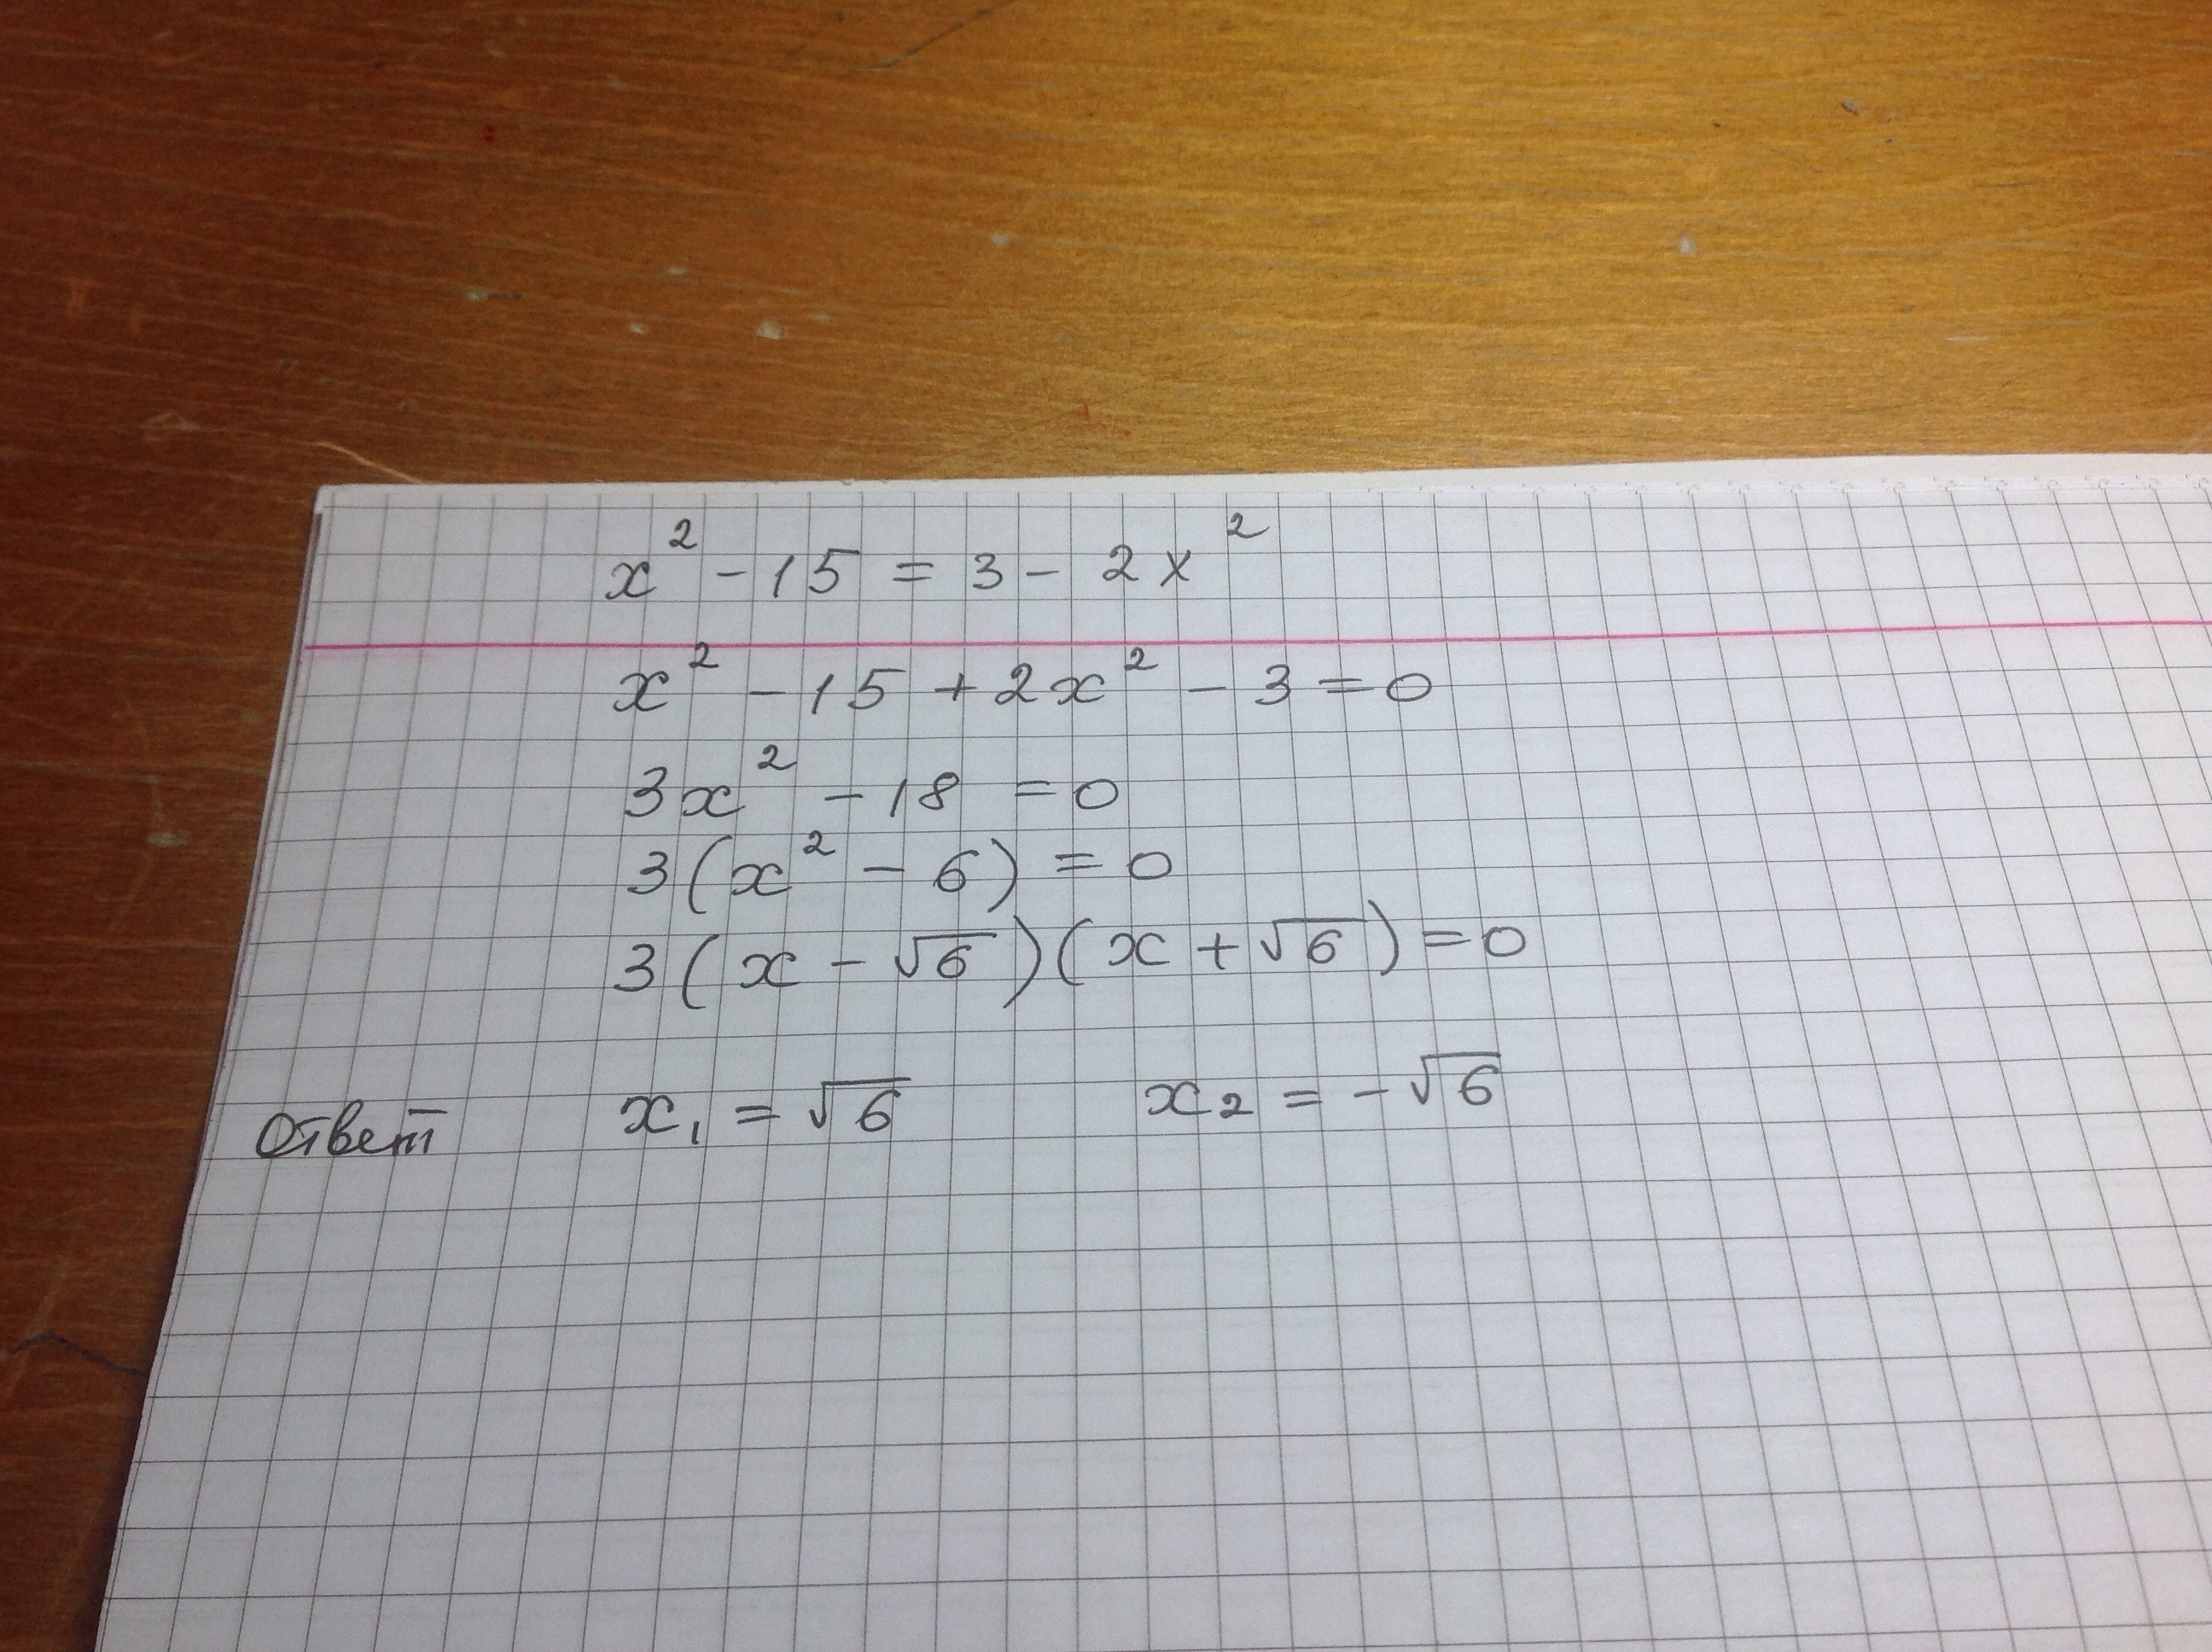 x² - 15 = 3 - 2x²
x² - 15 + 2x² - 3 = 0
3x² - 18 = 0
3(x² - 6) = 0
3(x - √6)(x + √6) = 0
Ответ x₁ = √6 x₂ = -√6